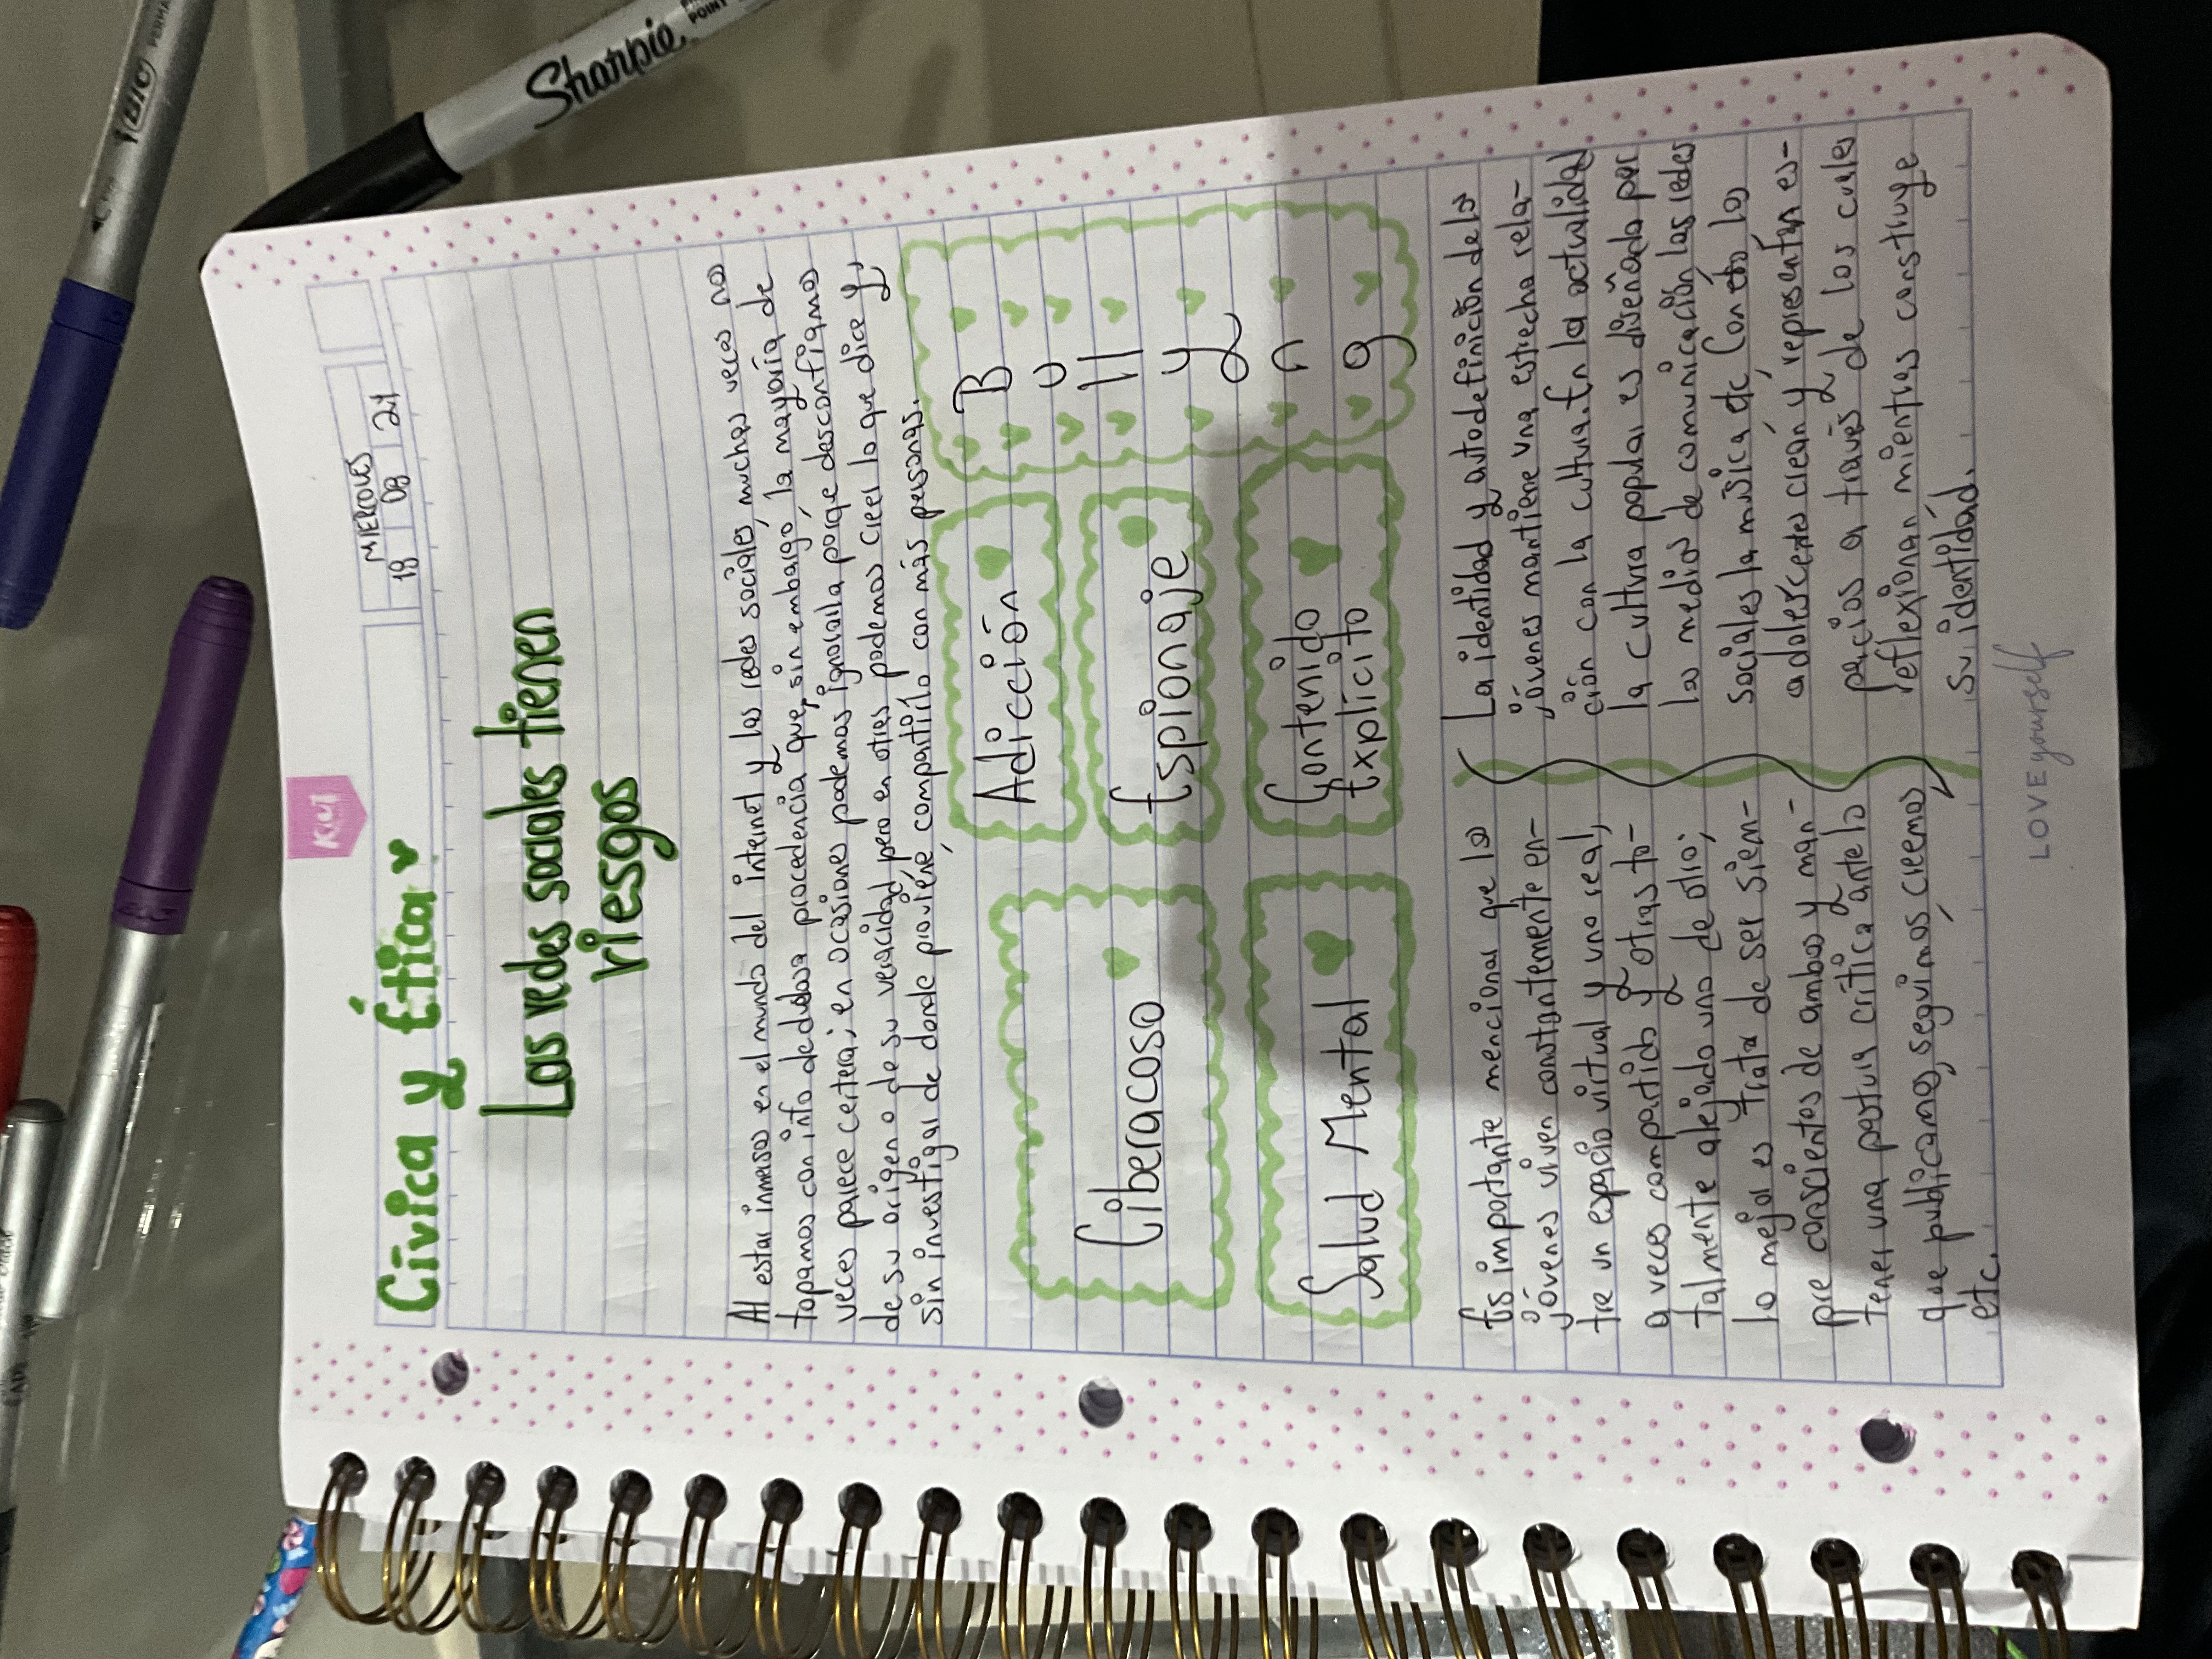 MIERCOLES
18 08 21
KIUT
Cívica y Ética
Las redes sociales tienen
riesgos
Al estar inmersos en el mundo del internet y las redes sociales, muchas veces nos
topamos con info de dudosa procedencia que, sin embargo, la mayoría de
veces parece certera; en ocasiones podemos ignorarla porque desconfiamos
de su origen o de su veracidad, pero en otras podemos creer lo que dice y,
sin investigar de donde proviene, compartirlo con más personas.
Ciberacoso
Adicción
Espionaje
Bullyng
Salud Mental
Contenido
Explícito
Es importante mencionar que los
jóvenes viven constantemente en-
tre un espacio virtual y uno real,
a veces compartidos y otras to-
talmente alejado uno de otro;
lo mejor es trata de ser siem-
pre conscientes de ambos y man-
tener una postura crítica ante lo
que publicamos, seguimos, creemos
etc.
La identidad y autodefinición de los
jóvenes mantiene una estrecha rela-
ción con la cultura. En la actualidad
la cultura popular es diseñada por
los medios de comunicación, las redes
sociales, la música, etc. Con esto los
adolescentes crean y representan es-
pacios a través de los cuales
reflexionan mientras constuye
su identidad.
LOVE yourself
BIC
Sharpie
POINT